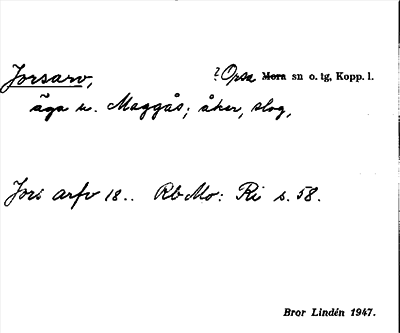 Jorsarv,    ? Orsa Mora sn o. tg, Kopp. l.
äga u. Maggås; åker, slog,
Jori arfv 18.. Rb Mo: Ri s. 58.
Bror Lindén 1947.